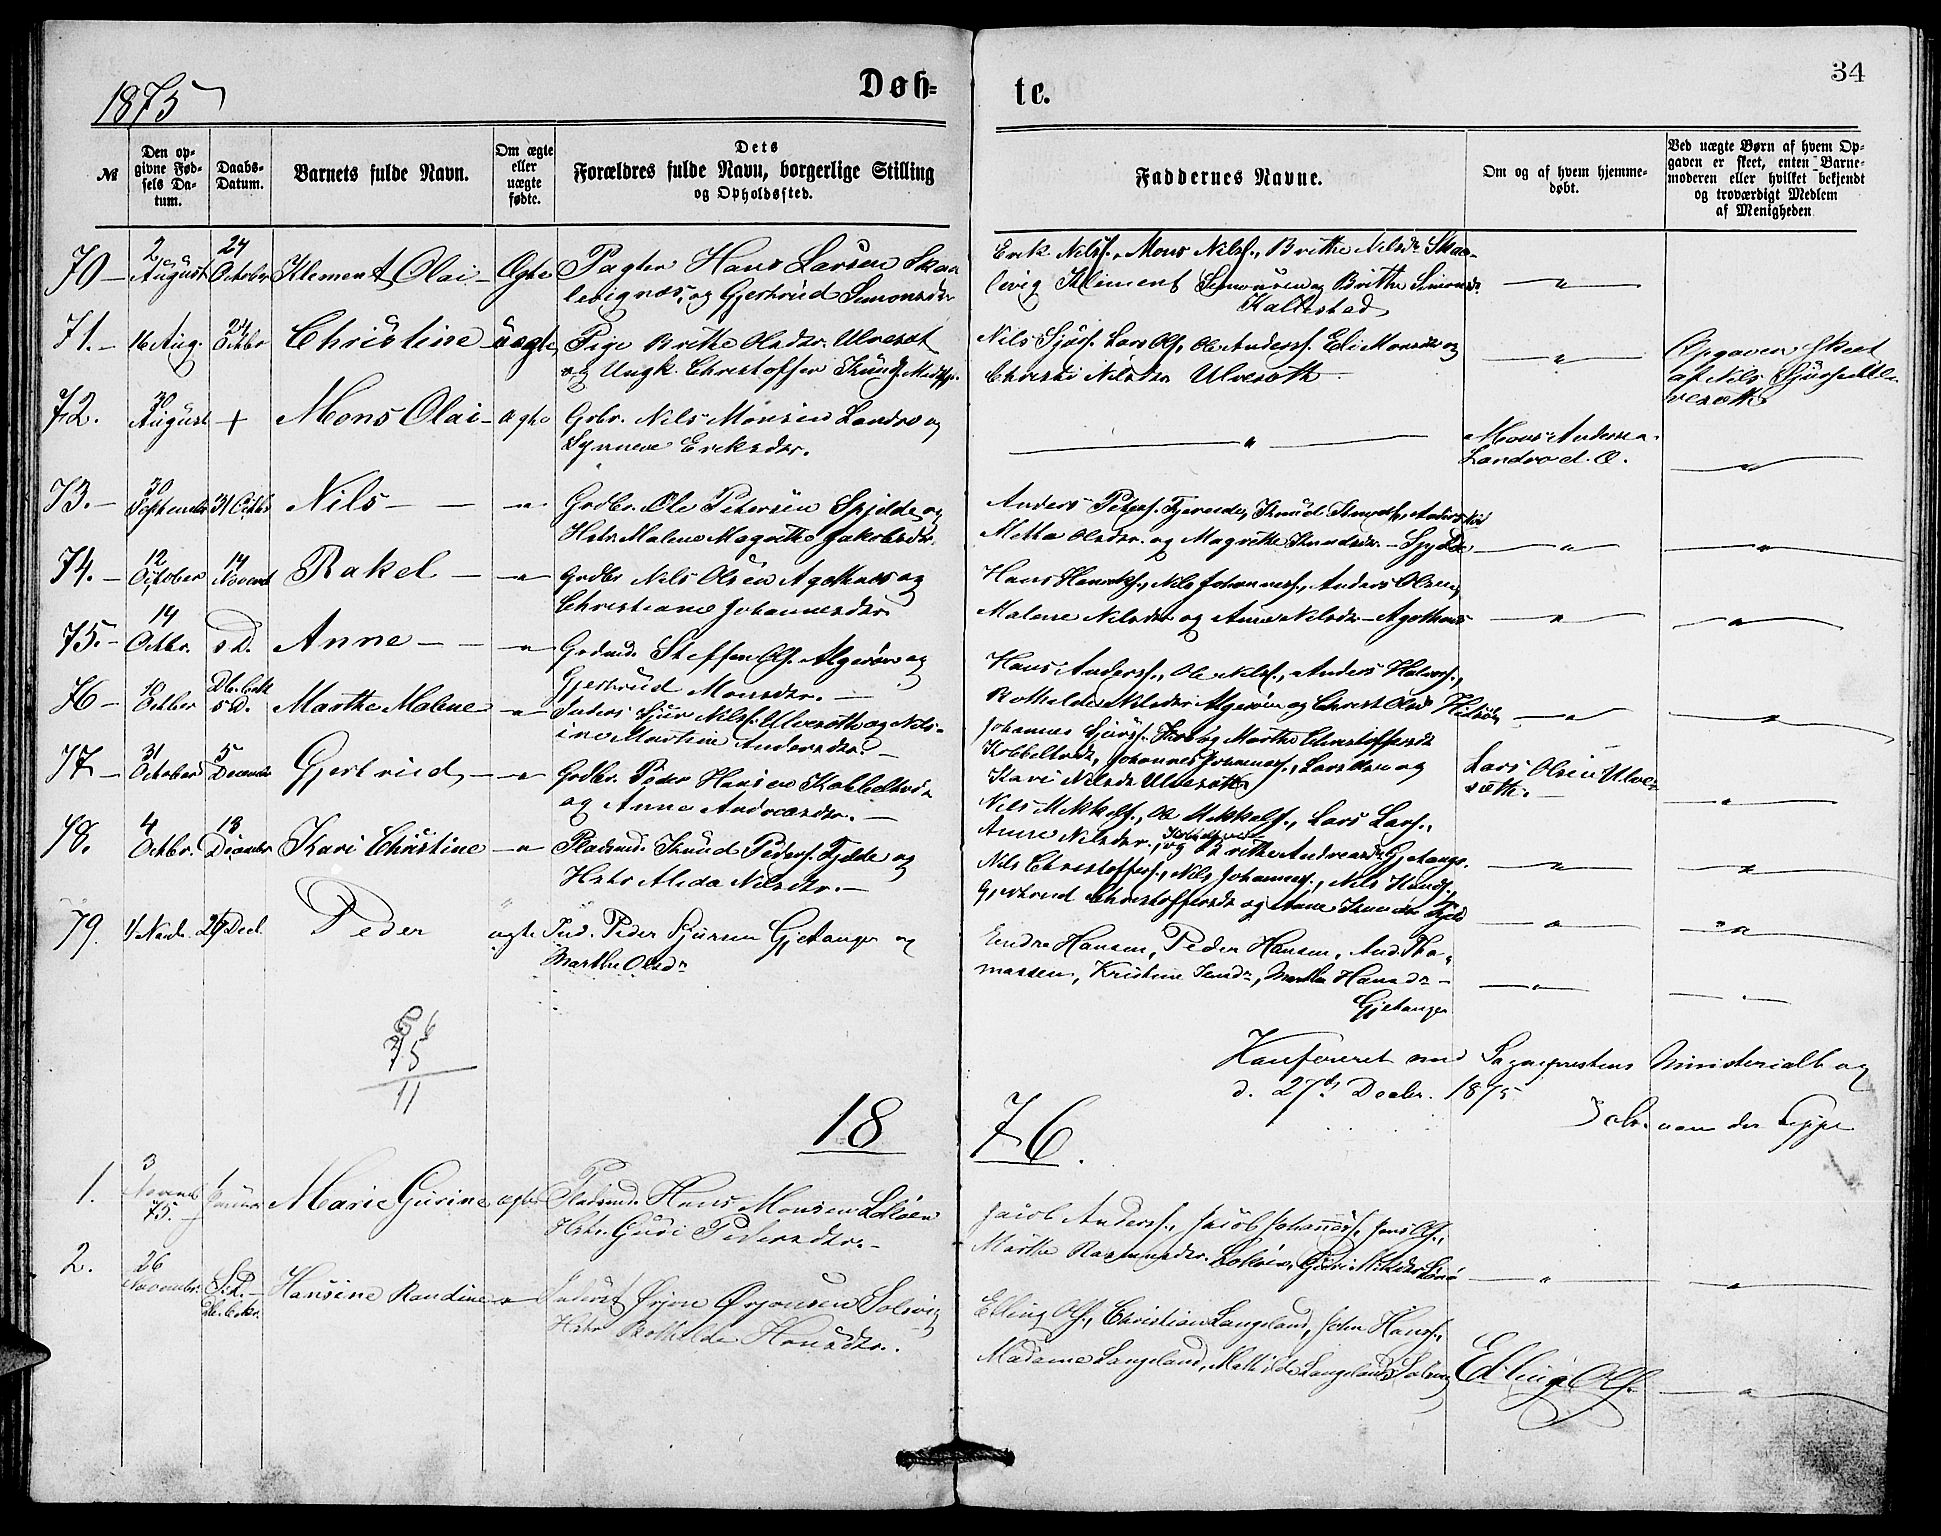 1875
Døb=
te.
34
№
Den op-
givne Fød-
sels Da-
tum.
Daabs-
Datum.
Barnets fulde Navn.
Om ægte
eller
uægte
fødte.
Dets
Forældres fulde Navn, borgerlige Stilling
og Opholdssted.
Faddernes Navne.
Om og af hvem hjemme-
døbt.
Ved uægte Børn af hvem Op-
gaven er skeet, enten Barne-
moderen eller hvilket bekjendt
og troværdigt Medlem
af Menigheden.
70 - 2 August 24 October Klement Olai - Ægte Pagter Hans Larsen Skaa
levignæs, og Gjertrud Simonsdr
Erik Nilss., Mons Nilss., Brithe Nilsdr Skaa-
levig Kliment Simonsen og Brithe Simonsdr
Kallestad
71. - 16 Aug. 24 Octbr Christine - uægte Pige Brithe Olsdr. Ulveset
og Ungk. Christoffer Knuds.
Nils Sjurs. Lars Ols., Ole Anderss. Eli Monsdr og
Christi Nilsdr Ulveseth
Opgaven skeet
af Nils Sjurss. Ul-
veseth
72. 30 August + Mons Olai - ægte Grbr. Nils Monsen Landro og
Synneve Eriksdr.
Mons Andersen
Landro d. Æ.
73. - 30 September 31 Octbr Nils - - " Grdbr. Ole Petersen Spjelde og
Hstr Malene Magrethe Jakobsdr.
Anders Peters. Fjereide, Knud Knuds.,
Metta Olsdr. og Magrethe Knudsdr. - Spjelde
74. - 12 October 14 Novemb Rakel - " Grdbr Nils Olsen Agotnes og
Christiane Johannesdr.
Hans Hans., Nils Johanness., Anders Olsen,
Malene Nilsdr og Anne Nilsdr - Agotnes
75. - 19 Octbr. s.D. Anne - - " Grdmd. Steffen Ols. Algerøen og
Gjertrud Monsdr. -
Hans Anderss., Ole Nilss., Anders Halvors.,
Bothilde Nilsdr Algerøen og Christi Olsd
76 - 10 Octber s.D. Marthe Malene - " Inders Sjur Nilss. Ulveseth og Nils-
ine Martine Andersdr. -
Johannes Sjurs. og Marthe Christoffersdr
Kobbeltvedt, Johannes Johanness., Lars Olsen og
Kari Nilsdr Ulveseth
Lars Olsen Ulve-
sæth. -
77 - 31 October 5 December Gjertrud, - " Grdbr. Peder Hansen Kobbeltvedt
og Anna Andreasdr. -
Nils Mikkels., Ole Mikkels., Lars Lars.,
Anne Nilsdr. og Brithe Andreasdr Gjetanger
78. 4 Octbr. 18 December Kari Christine - " Pladsmd. Knud Peders. Fjelde og
Hstr Alida Nilsdtr. -
Nils Christoffers., Nils Johanness., Nils Knuds.,
Gjertrud Christoffersdr og Anne Knudsdr
79. 26 Decl. Peder ægte Ind. Peder Sjursen Gjetanger og
Marthe Olsdr
Endre Hansen, Peder Hansen, And. Tho-
massen, Kristine Jensdr, Marthe Hansdr -
Gjetanger
75
11
Konfereret med Sognepræstens Ministerialbog
d. 27d Decbr. 1875
Jobr. van der Lippe
18 76.
1. 3 Novemb 75. - 1 Januar Marie Gurine ægte Pladsmd. Hans Monsen Lokøen
Hstr. Guri Pedersdtr. -
Jacob Anderss., Jacob Johaness., Jens Ols.,
Marthe Rasmusdr. Lokøen, Guri Nilsdr
2. 26 November S.D. - Hansine Randine " Ørjan Ørjansen Solsvig
Hstr Bothilde Hansdtr.
Elling Ols., Christian Langeland, John Hans.,
Madame Langeland, Mathilde Langeland Solsvig
Elling Ols.